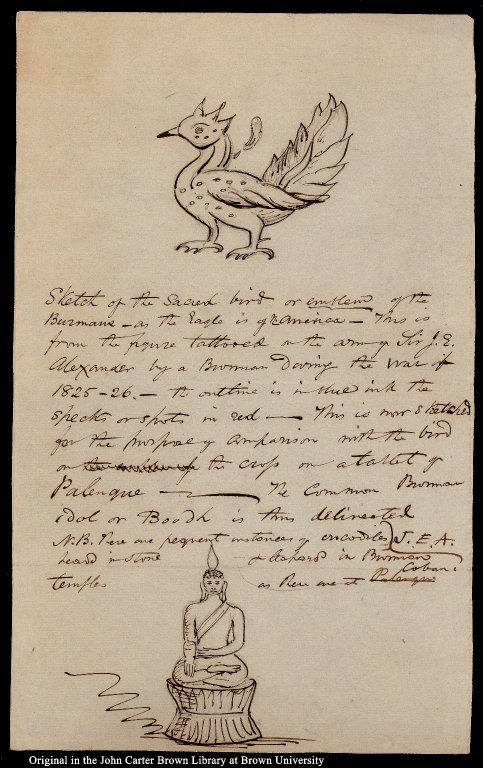 Sketch of the Sacred bird or emblem of the
Burmans – as the Eagle is of America – This is
from the figure tattooed on the arm of Sir J. E.
Alexander by a Burman during the War of
1825-26. – the outline is in blue ink the
specks or spots in red – This is now sketched
for the purpose of comparison with the bird
on the the cross on a tablet of
Palenque – The Common Burman
idol or Boodh is thus delineated
J. E. A.
N.B. There are frequent instances of crocodiles
heads in stone & in Burman
temples as there are at Palenque Coban
Original in the John Carter Brown Library at Brown University